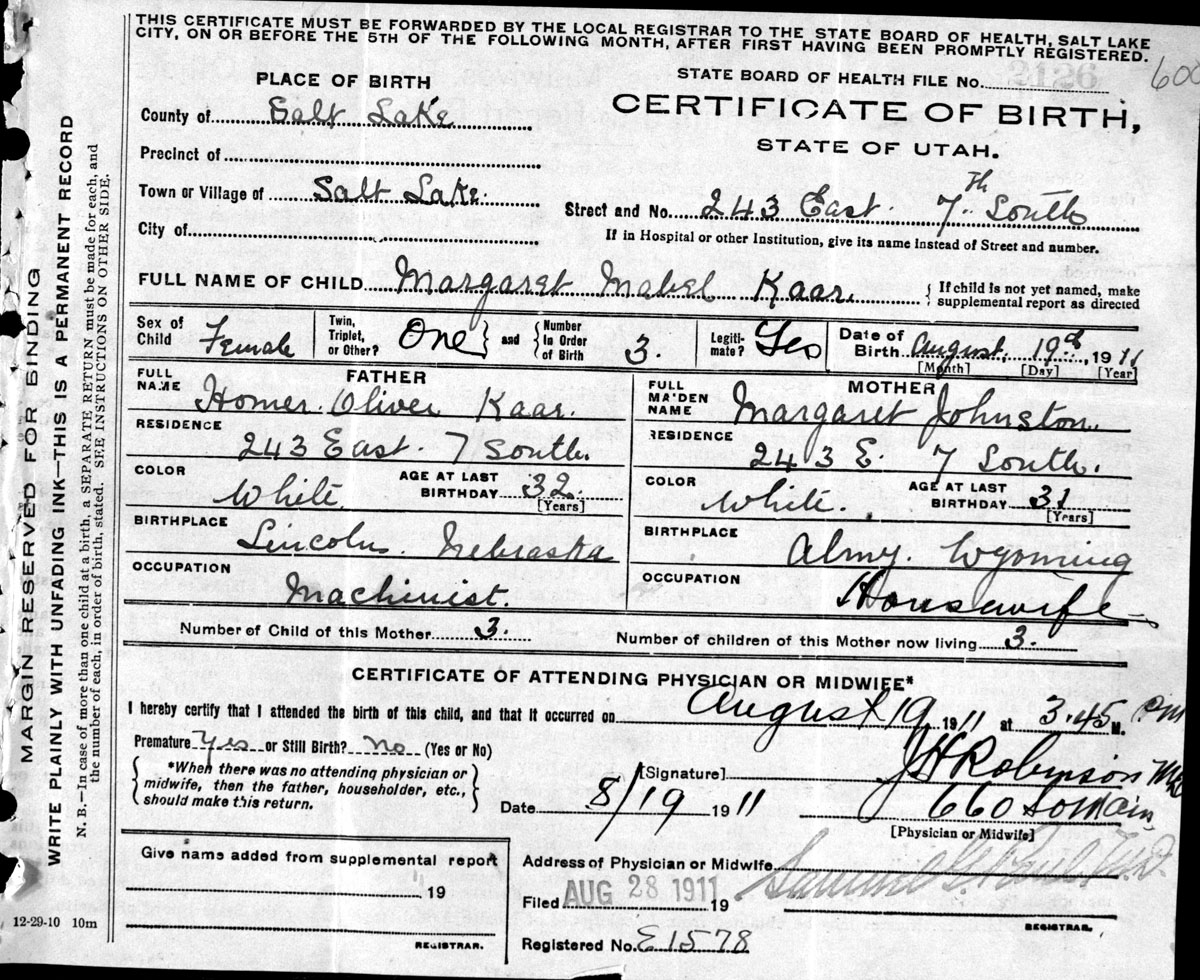 THIS CERTIFICATE MUST BE FORWARDED BY THE LOCAL REGISTRAR TO THE STATE BOARD OF HEALTH, SALT LAKE
CITY, ON OR BEFORE THE 5TH OF THE FOLLOWING MONTH, AFTER FIRST HAVING BEEN PROMPTLY REGISTERED.
600
MARGIN RESERVED FOR BINDING
WRITE PLAINLY WITH UNFADING INK—THIS IS A PERMANENT RECORD
N. B.—In case of more than one child at a birth, a SEPARATE RETURN must be made for each, and
the number of each, in order of birth, stated. SEE INSTRUCTIONS ON OTHER SIDE.
12-29-10 10m
PLACE OF BIRTH
County of Salt Lake
Precinct of
Town or Village of Salt Lake.
City of
STATE BOARD OF HEALTH FILE No.
CERTIFICATE OF BIRTH,
STATE OF UTAH.
Street and No. 243 East. 7th South
If in Hospital or other Institution, give its name instead of Street and number.
FULL NAME OF CHILD Margaret Mabel Kaar.
{ If child is not yet named, make
supplemental report as directed
Sex of Child Female
Twin, Triplet, or Other? One } and { Number in Order of Birth 3.
Legitimate? Yes
Date of Birth August, 19th, 1911
[Month] [Day] [Year]
FATHER
FULL NAME Homer Oliver Kaar.
RESIDENCE
243 East. 7 South.
COLOR White. AGE AT LAST BIRTHDAY 32. [Years]
BIRTHPLACE
Lincoln. Nebraska
OCCUPATION
Machinist.
MOTHER
FULL MAIDEN NAME Margaret Johnston.
RESIDENCE
243 E. 7 South.
COLOR White. AGE AT LAST BIRTHDAY 31 [Years]
BIRTHPLACE
Almy. Wyoming
OCCUPATION
Housewife
Number of Child of this Mother 3. Number of children of this Mother now living 3.
CERTIFICATE OF ATTENDING PHYSICIAN OR MIDWIFE*
I hereby certify that I attended the birth of this child, and that it occurred on August 19 1911 at 3.45 P.M M.
Premature Yes or Still Birth? no (Yes or No)
{ *When there was no attending physician or
midwife, then the father, householder, etc.,
should make this return. }
[Signature] J H Robinson MD
Date 8/19 1911 660 So Main
[Physician or Midwife]
Give name added from supplemental report
19
REGISTRAR.
Address of Physician or Midwife
Filed AUG 28 1911 19
Samuel G. Paul M.D.
REGISTRAR.
Registered No. E1578